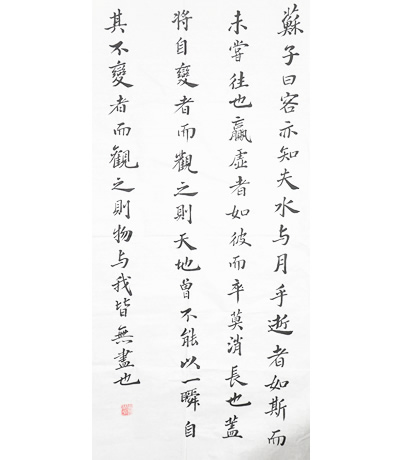 蘇子曰客亦知夫水与月乎逝者如斯而
未嘗往也贏虛者如彼而卒莫消長也蓋
將自變者而觀之則天地曾不能以一瞬自
其不變者而觀之則物与我皆無盡也